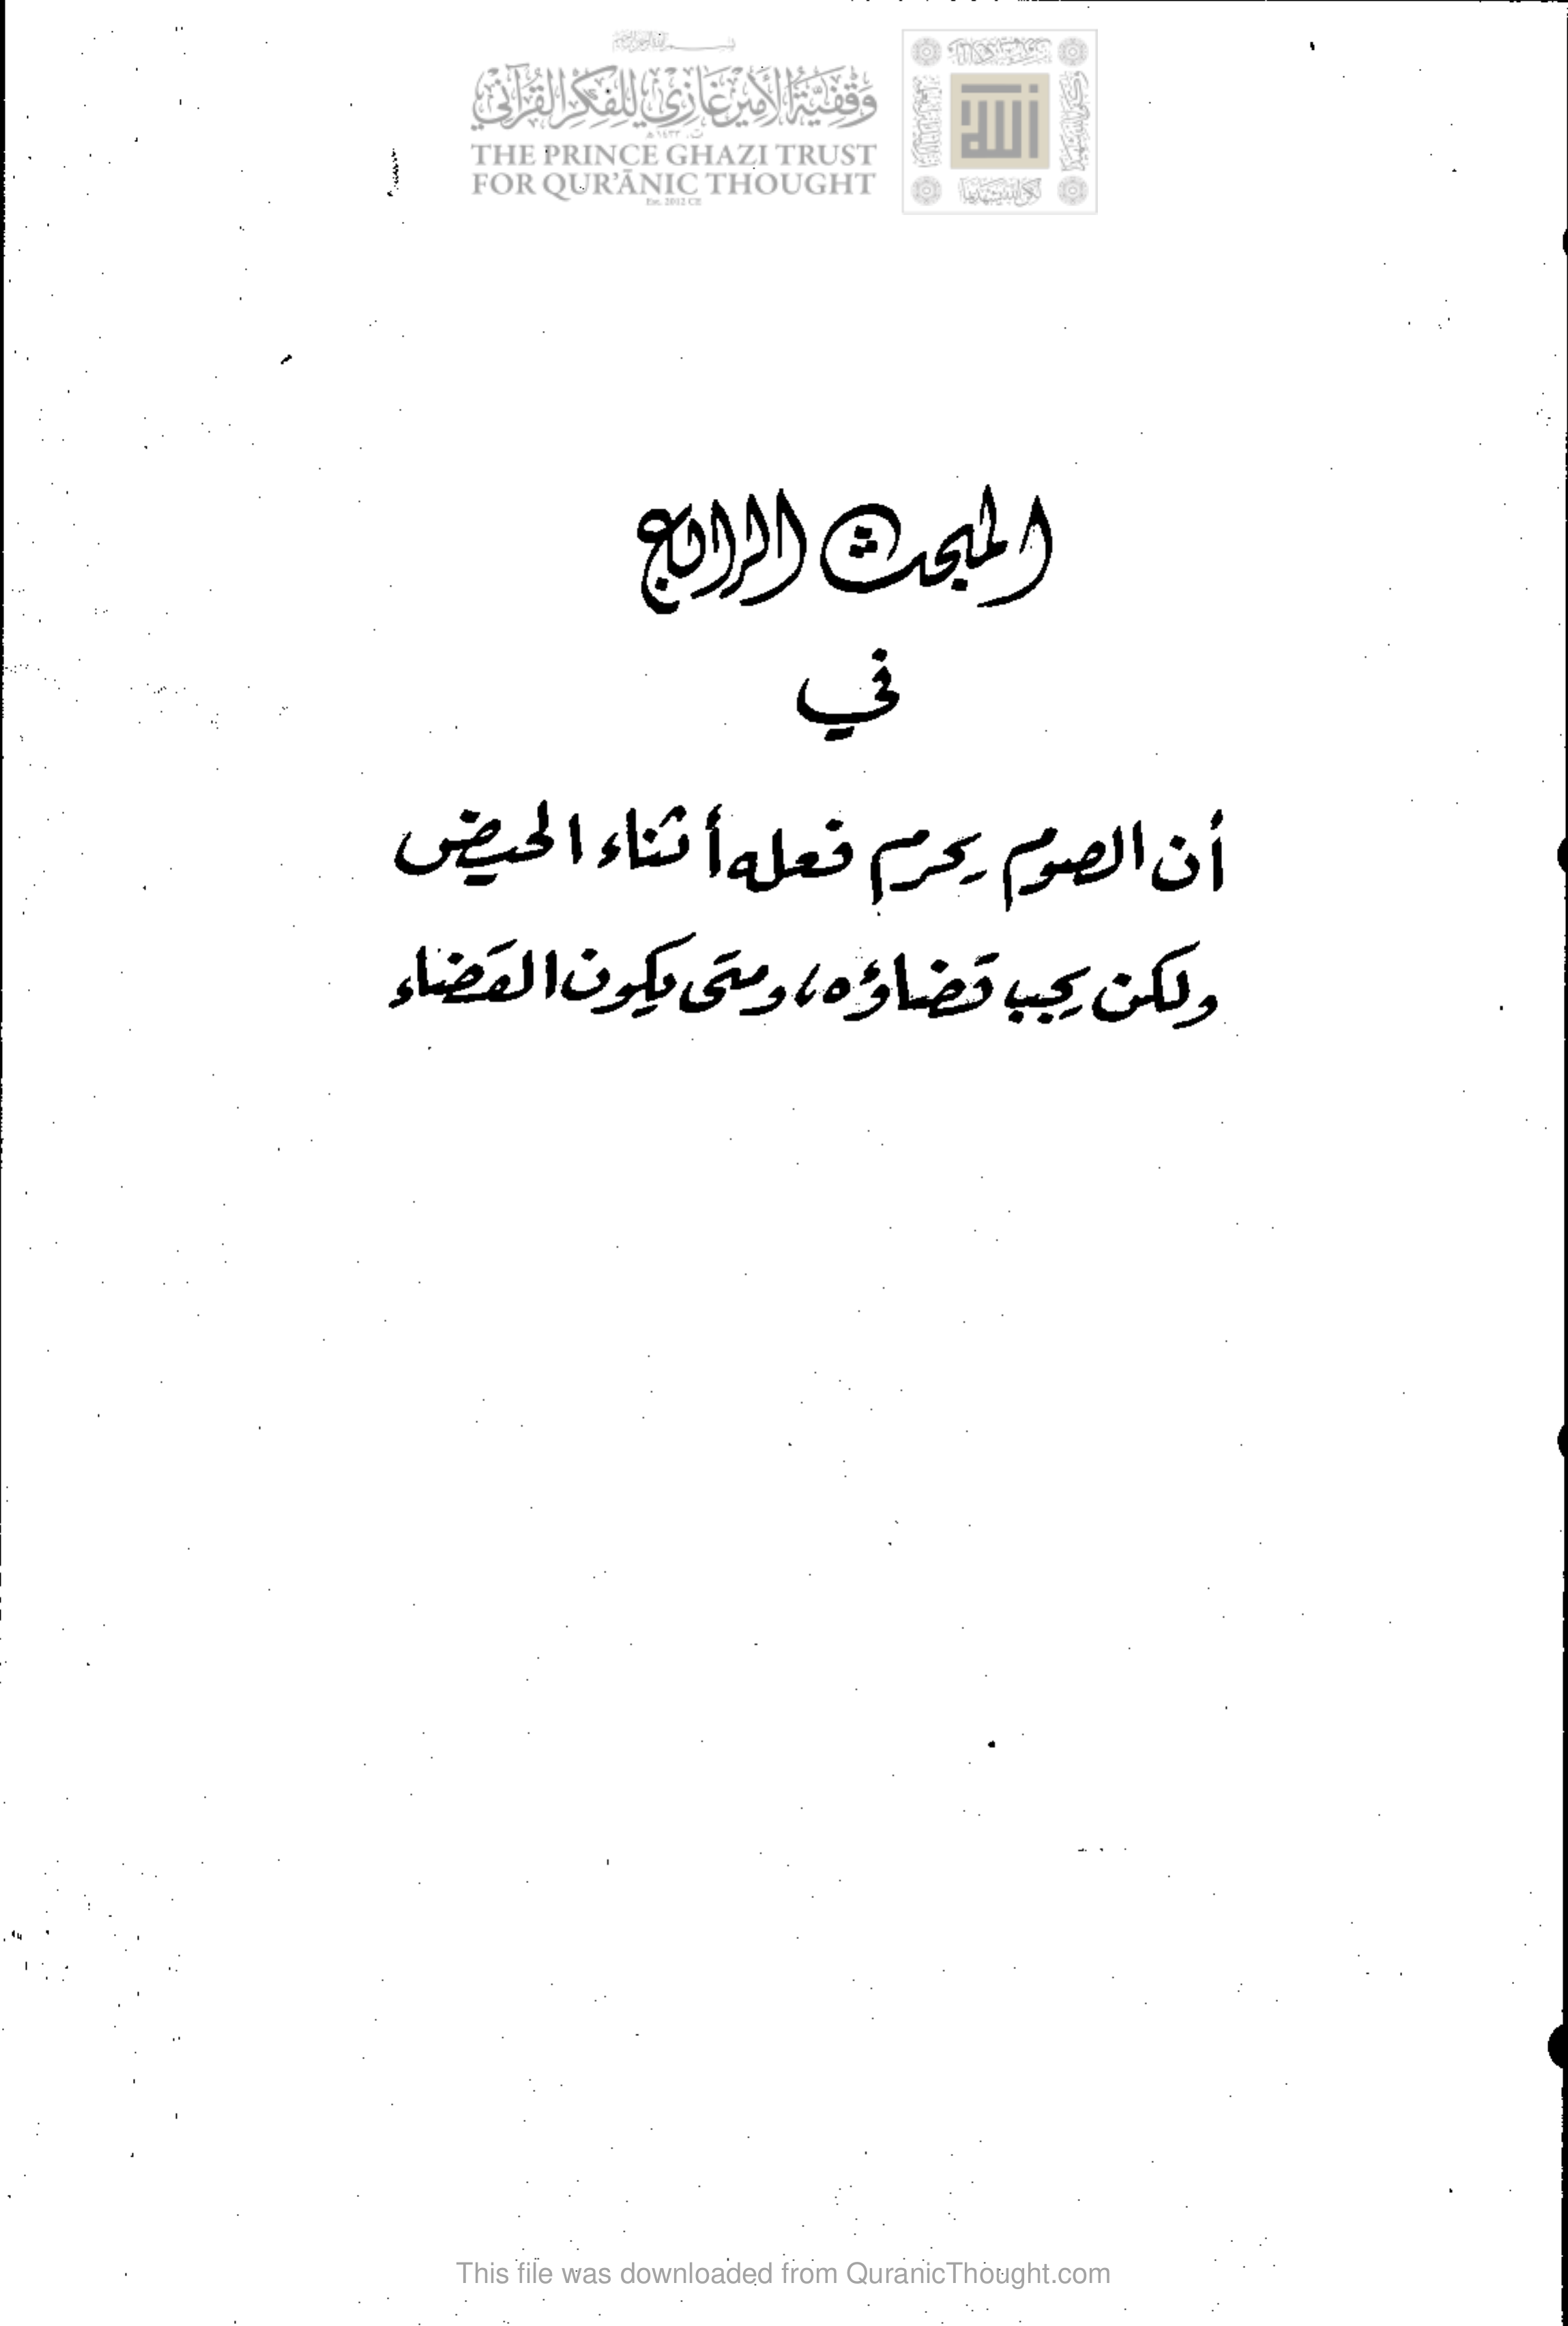 وقفية الأمير غازي للفكر القرآني
THE PRINCE GHAZI TRUST
FOR QUR'ĀNIC THOUGHT
Est. 2012 CE
المبحث الرابع
في
أن الصوم يحرم فعله أثناء الحيض
ولكن يجب قضاؤه، ومتى يكون القضاء
This file was downloaded from QuranicThought.com